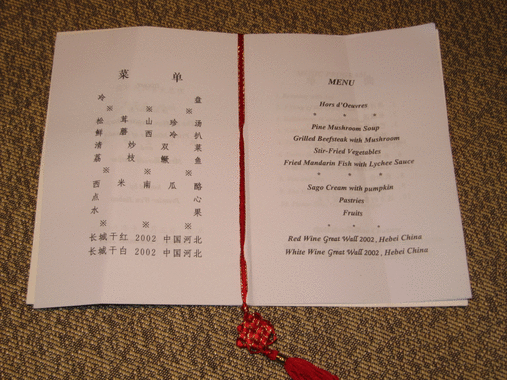 菜 单
冷 盘
※ ※ ※
松 茸 山 珍 汤
鲜 蘑 西 冷 扒
清 炒 双 菜
荔 枝 鳜 鱼
※ ※ ※
西 米 南 瓜 酪
点 心
水 果
※ ※ ※
长城干红 2002 中国河北
长城干白 2002 中国河北
MENU
Hors d'Oeuvres
* * *
Pine Mushroom Soup
Grilled Beefsteak with Mushroom
Stir-Fried Vegetables
Fried Mandarin Fish with Lychee Sauce
* * *
Sago Cream with pumpkin
Pastries
Fruits
* * *
Red Wine Great Wall 2002 , Hebei China
White Wine Great Wall 2002 , Hebei China